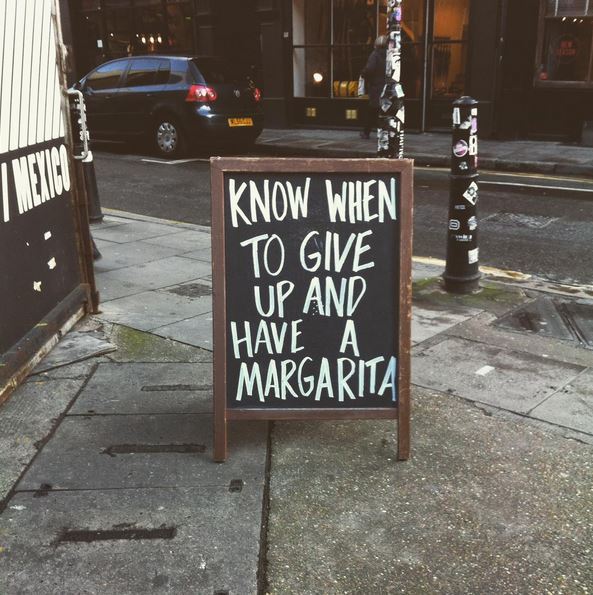 KNOW WHEN
TO GIVE
UP AND
HAVE A
MARGARITA
/ MEXICO